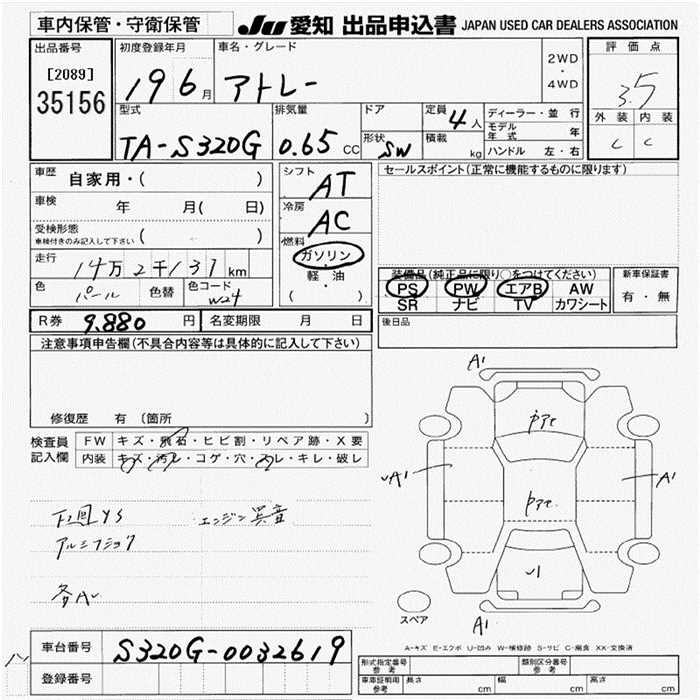 車内保管・守衛保管
JU 愛知 出品申込書 JAPAN USED CAR DEALERS ASSOCIATION
出品番号
[2089]
35156
初度登録年月
19 6 月
車名・グレード
アトレー
2WD
・
4WD
評価点
3.5
外装 内装
C C
型式
TA-S320G
排気量
0.65 CC
ドア
形状 SW
定員 4 人
積載 kg
ディーラー・並行
モデル年式 年
ハンドル 左・右
車歴 自家用・( )
車検 年 月( 日)
受検形態
車検付きのみ記入して下さい ( )
走行 14万2千131 km
色 パール 色替 色コード W24
シフト AT
冷房 AC
燃料
ガソリン
軽・油
( )
セールスポイント(正常に機能するものに限ります)
装備品(純正品に限り○をつけてください)
PS PW エアB AW
SR ナビ TV カワシート
新車保証書
有・無
R券 9.880 円 名変期限 月 日
後日品
注意事項申告欄(不具合内容等は具体的に記入して下さい)
修復歴 有 (箇所 )
検査員記入欄
FW キズ・飛石・ヒビ割・リペア跡・X要
内装 キズ・汚レ・コゲ・穴・スレ・キレ・破レ
下回YS エンジン異音
各A
A1
A1
A1
A1
スペア
A-キズ E-エクボ U-凹み W-補修跡 S-サビ C-腐食 XX-交換済
車台番号 S320G-0032619
登録番号
形式指定番号 参考
類別区分番号 参考
車庫証明用 参考 長さ cm 幅 cm 高さ cm